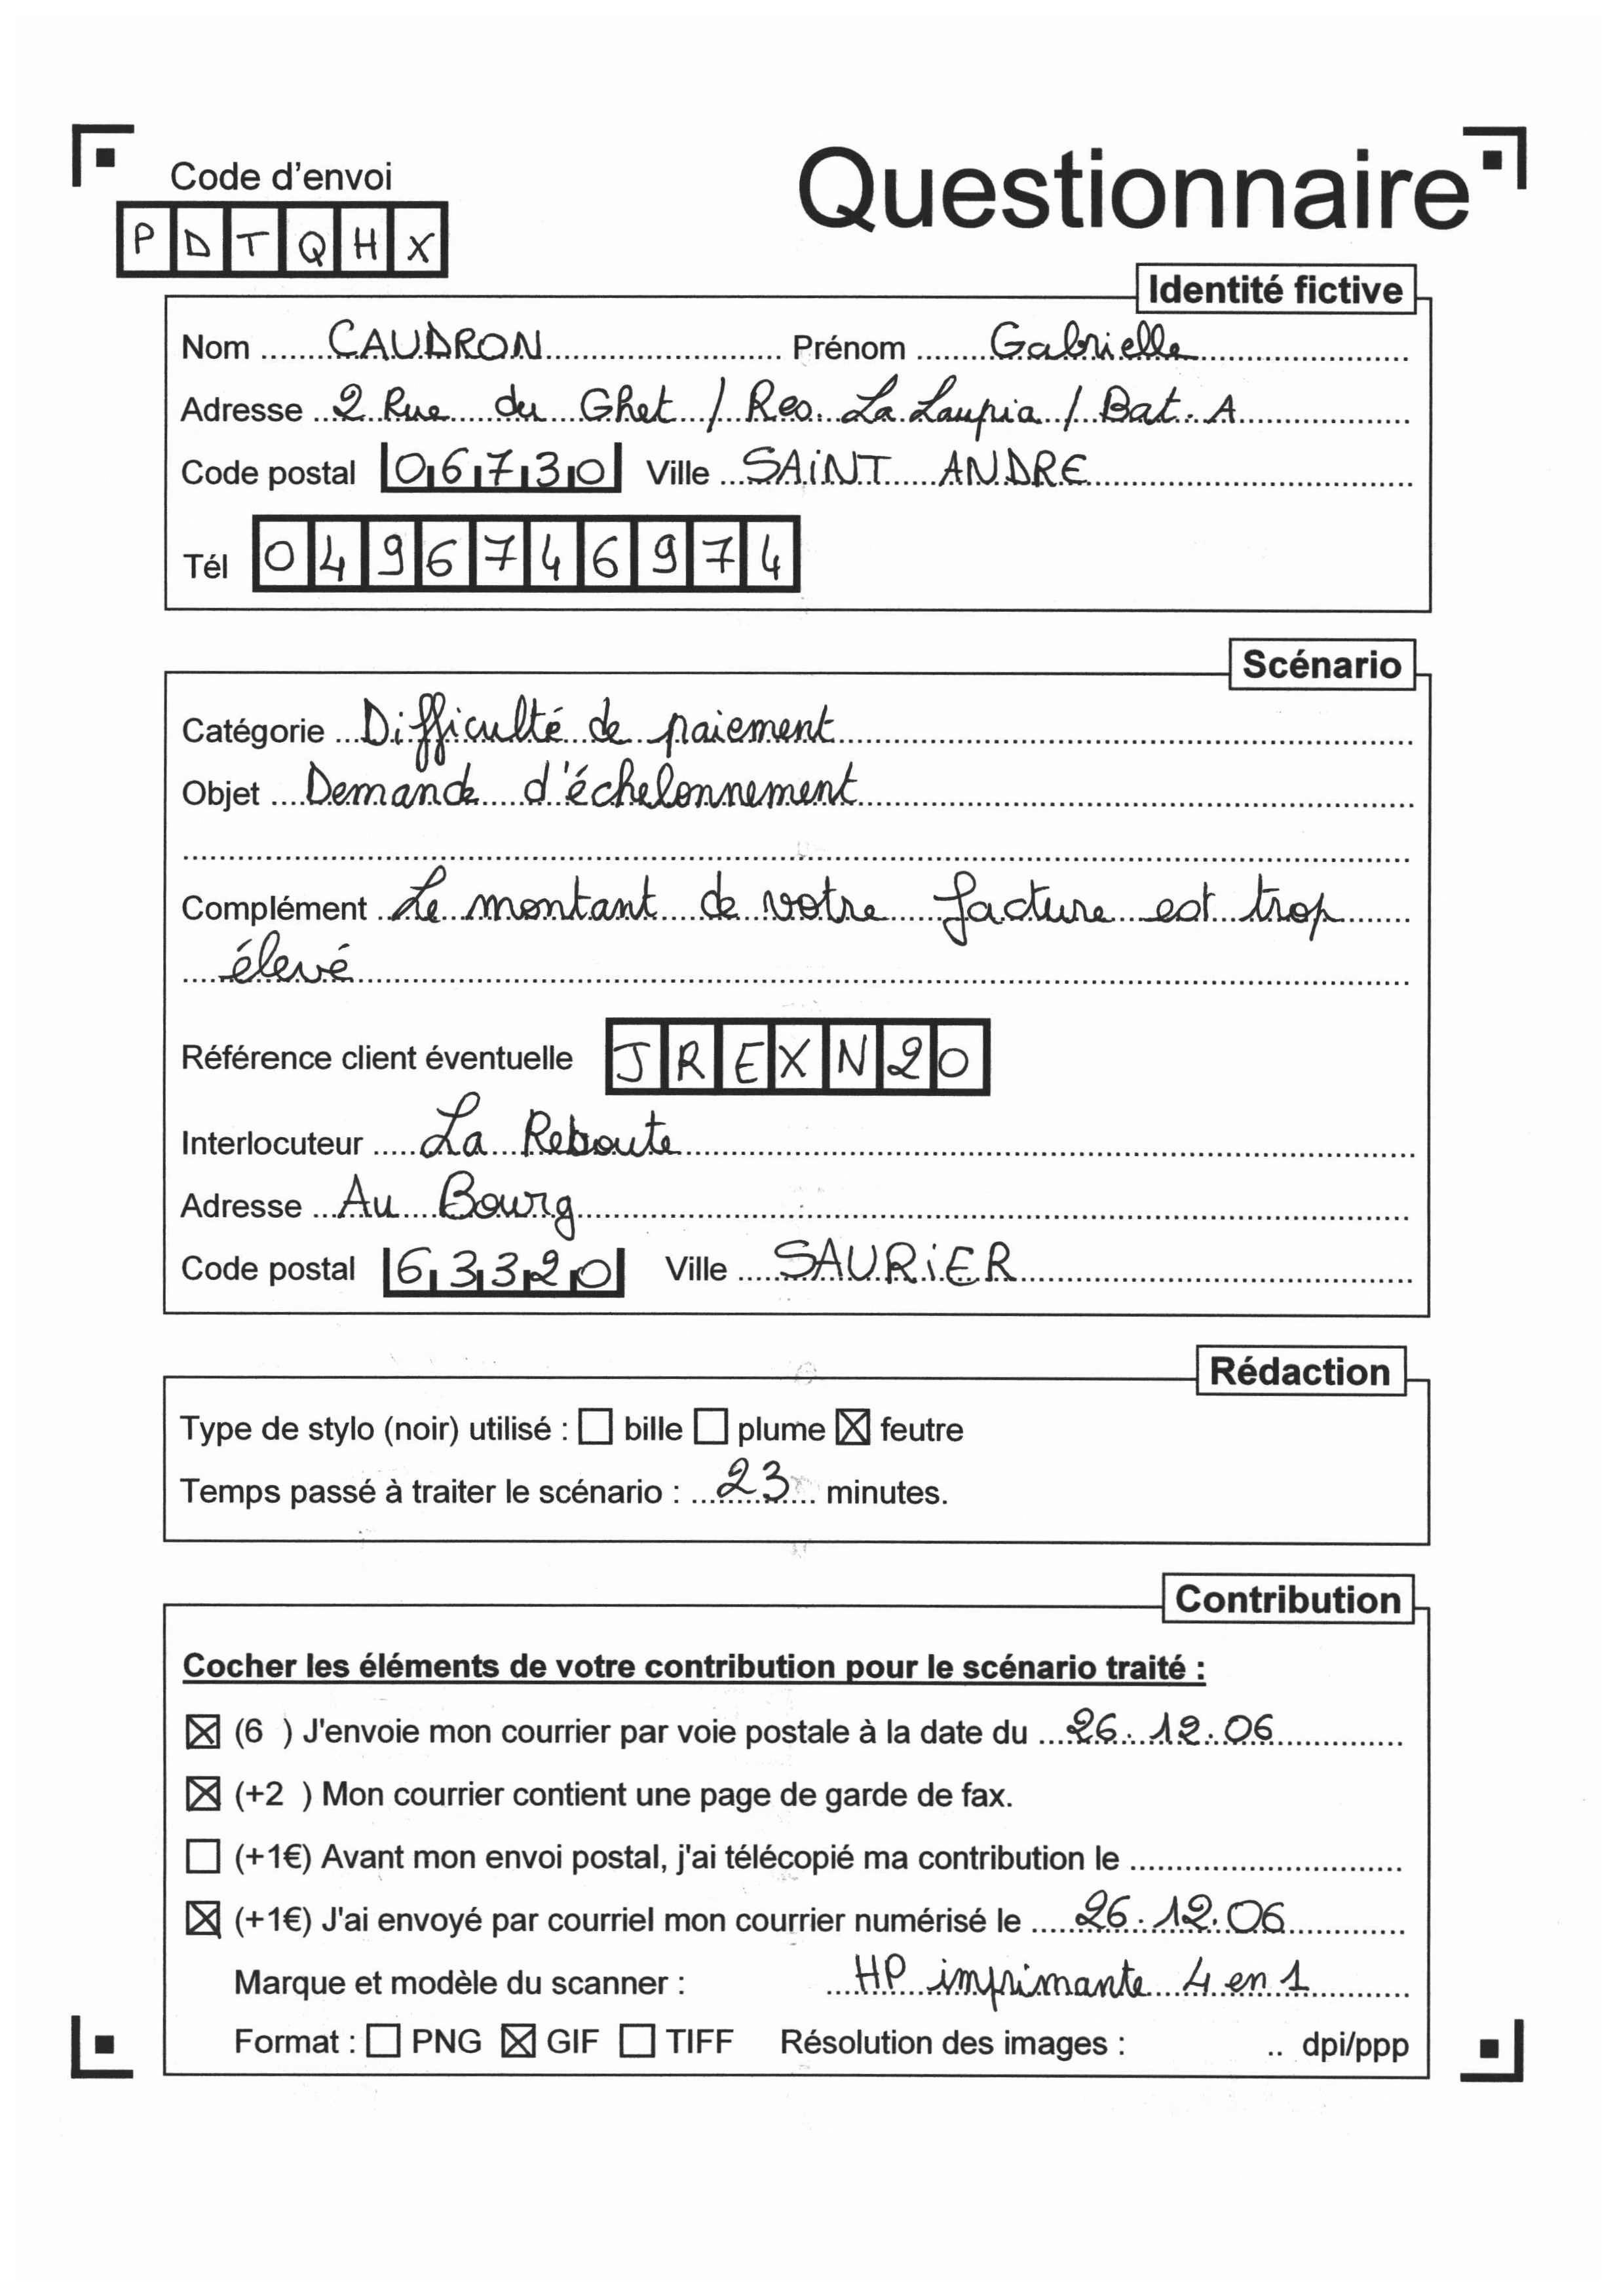 Code d'envoi
Questionnaire
P D T Q H X
Identité fictive
Nom CAUDRON Prénom Gabrielle
Adresse 2 Rue du Ghet / Res. La Laupia / Bat. A
Code postal 06730 Ville SAINT ANDRE
Tél 0496746974
Scénario
Catégorie Difficulté de paiement
Objet Demande d'échelonnement
Complément Le montant de votre facture est trop
élevé
Référence client éventuelle JREXN20
Interlocuteur La Reboute
Adresse Au Bourg
Code postal 63320 Ville SAURIER
Rédaction
Type de stylo (noir) utilisé : ☐ bille ☐ plume ☒ feutre
Temps passé à traiter le scénario : 23 minutes.
Contribution
Cocher les éléments de votre contribution pour le scénario traité :
☒ (6 ) J'envoie mon courrier par voie postale à la date du 26.12.06
☒ (+2 ) Mon courrier contient une page de garde de fax.
☐ (+1€) Avant mon envoi postal, j'ai télécopié ma contribution le
☒ (+1€) J'ai envoyé par courriel mon courrier numérisé le 26.12.06
Marque et modèle du scanner : HP imprimante 4 en 1
Format : ☐ PNG ☒ GIF ☐ TIFF Résolution des images : .. dpi/ppp